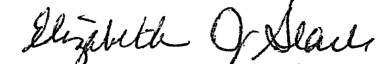 Elizabeth J Slack